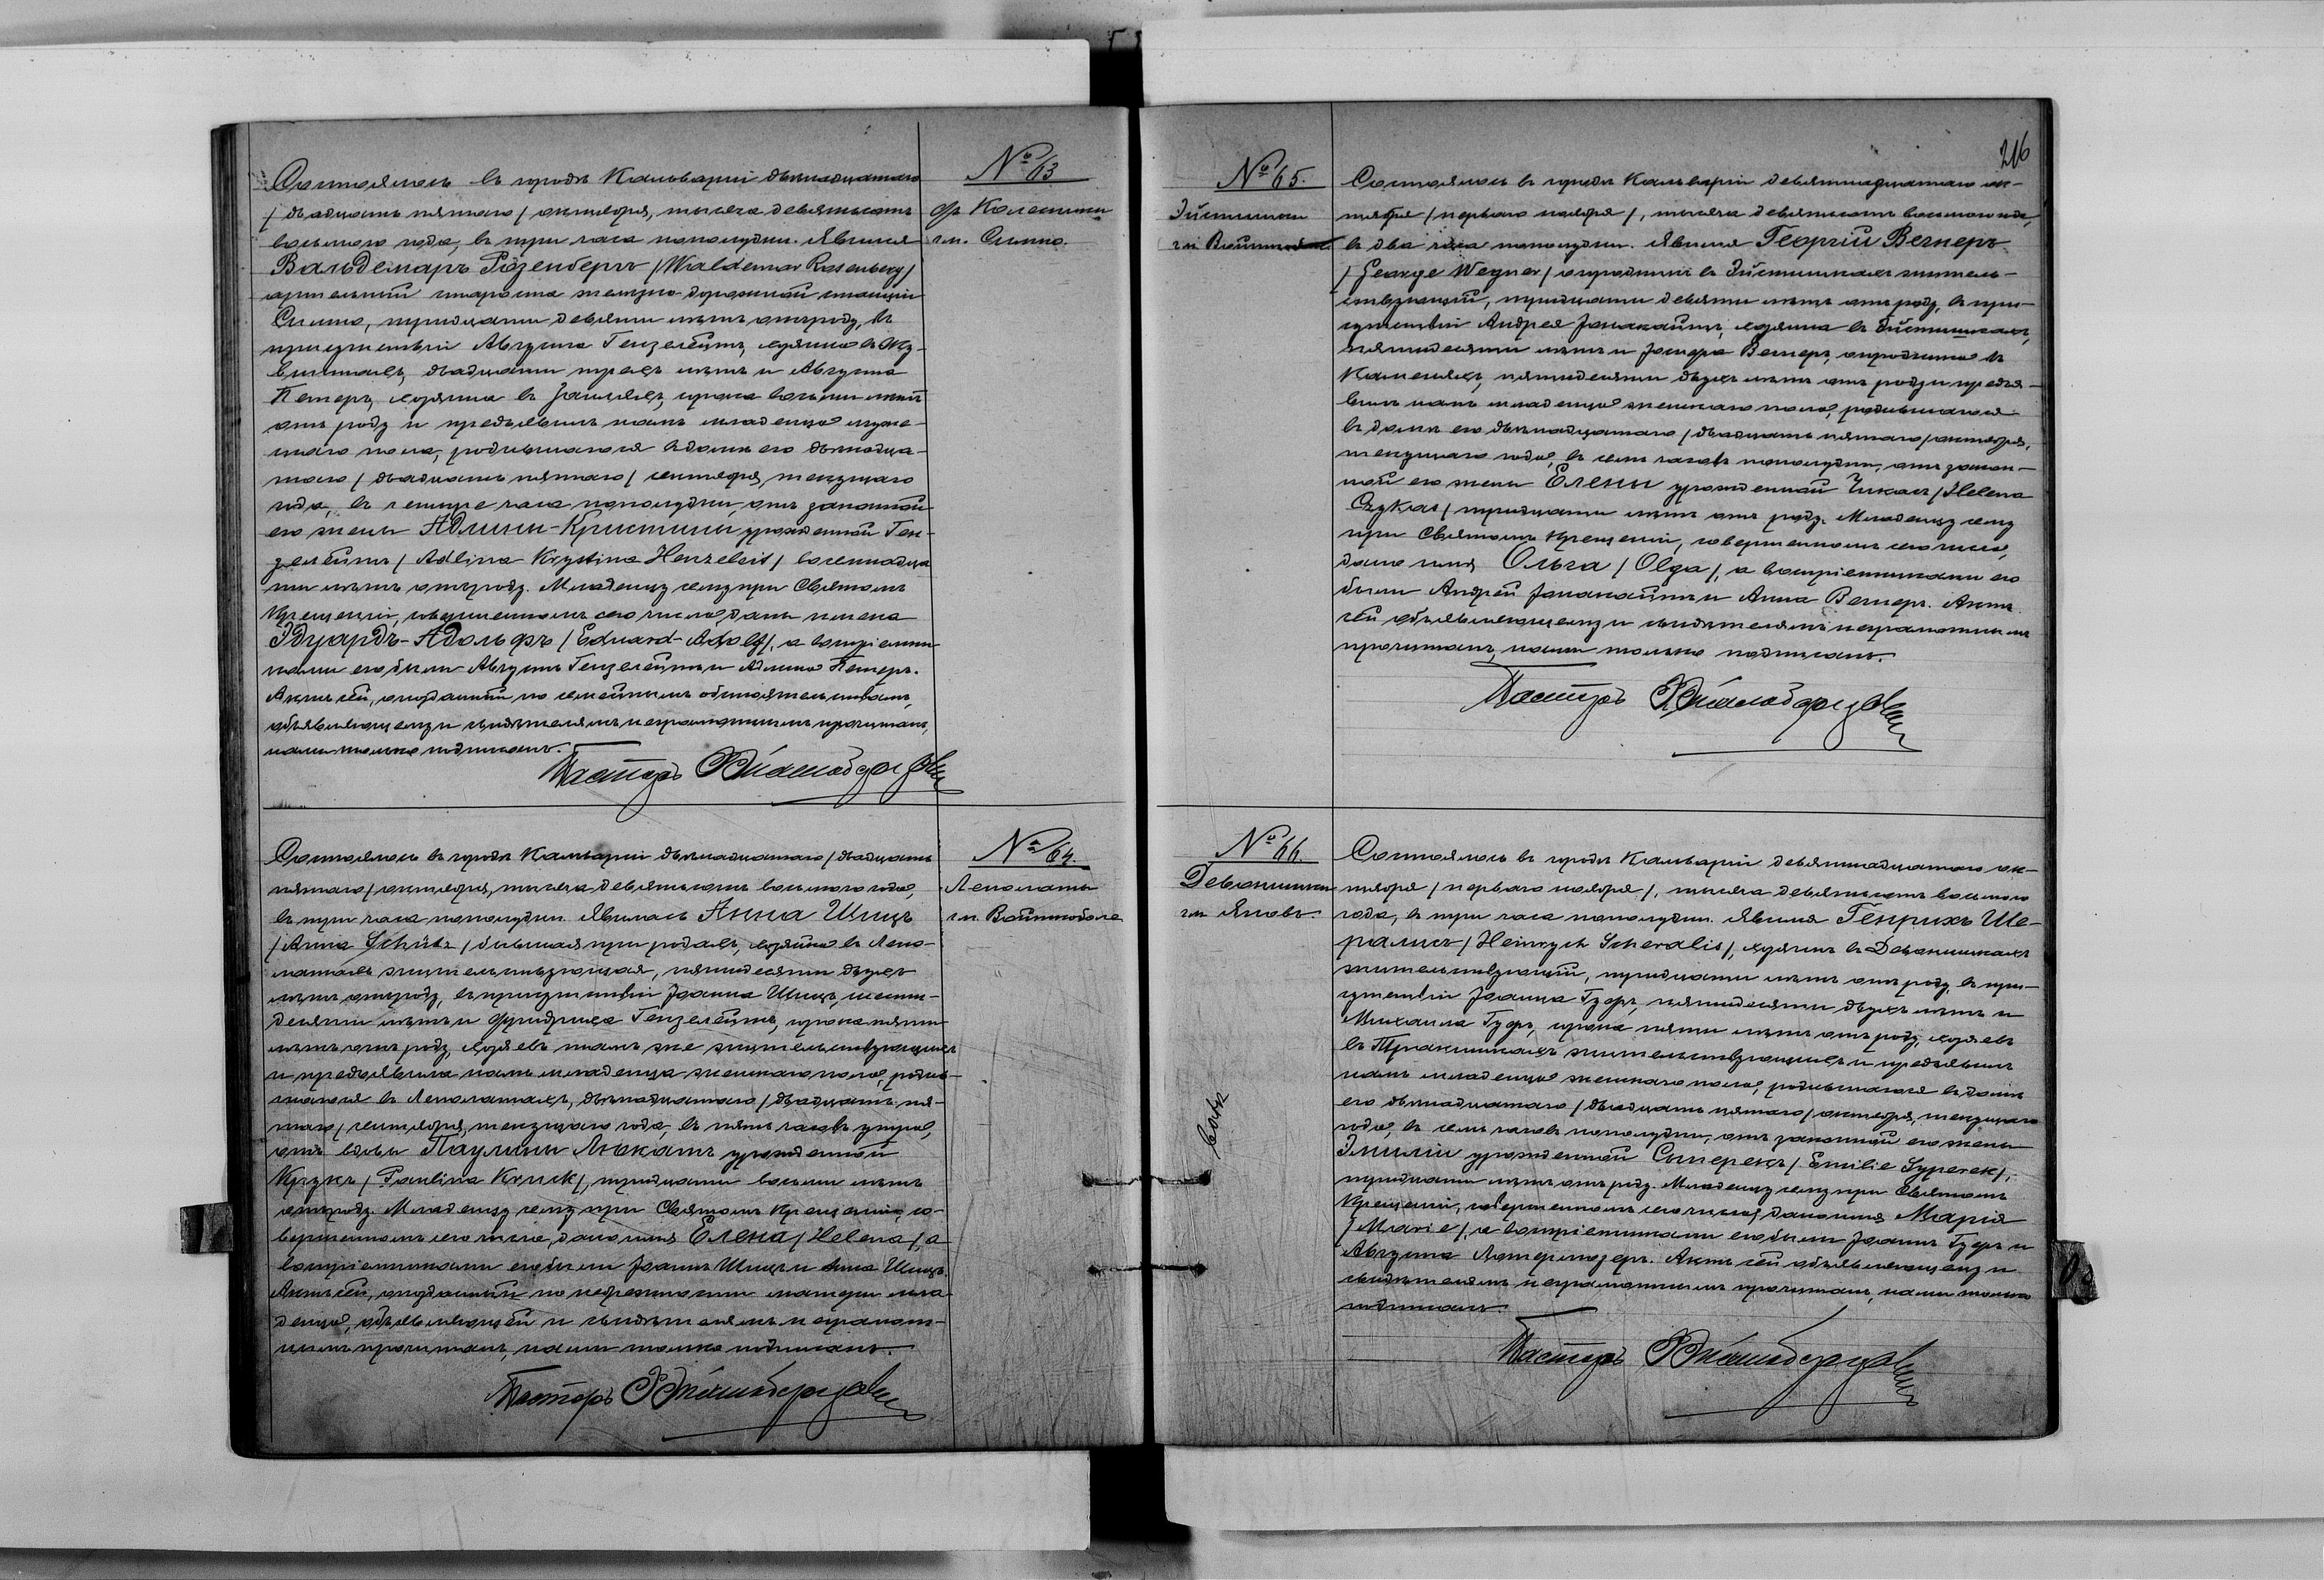 № 63
фр. Калетники
гм. Симно.
Состоялось въ городѣ Кальваріи двѣнадцатаго
/двадцать пятаго/ октября, тысяча девятьсотъ
восьмого года, въ три часа пополудни. Явился
Вальдемаръ Розенбергъ /Waldemar Rosenberg/
артельный староста желѣзно-дорожной станціи
Симно, тридцати девяти лѣтъ отъ роду, въ
присутствіи Августа Гензелейтъ, хозяина въ
двадцати трехъ лѣтъ и Августа
Петеръ, хозяина въ сорока восьми лѣтъ
отъ роду и предъявилъ намъ младенца муже-
скаго пола, родившагося въ домѣ его двѣнадца-
таго /двадцать пятаго/ сентября, текущаго
года, въ четыре часа пополудни, отъ законной
его жены Адлины-Кристины урожденной Ген-
зелейтъ /Adlina Krystina Henzeleit/ восемнадца-
ти лѣтъ отъ роду. Младенцу сему при Святомъ
Крещеніи, совершенномъ сего числа, даны имена
Эдуардъ-Адольфъ /Eduard-Adolf/, а воспріемни-
ками его были Августъ Гензелейтъ и Адлина Петеръ.
Актъ сей, опозданный по семейнымъ обстоятельствамъ,
объявляющему и свидѣтелямъ неграмотнымъ прочитанъ,
нами только подписанъ.
Пасторъ
№ 64
Леполаты
гм. Войтковола
Состоялось въ городѣ Кальваріи двѣнадцатаго /двадцать
пятаго/ октября, тысяча девятьсотъ восьмого года,
въ три часа пополудни. Явилась Анна Шицъ
/Anna Schütz/ бывшая при родахъ, хозяйка въ Лепо-
латахъ жительствующая, пятидесяти двухъ
лѣтъ отъ роду, въ присутствіи Іоанна Шицъ, шести-
десяти лѣтъ и Фридриха Гензелейтъ, сорока пяти
лѣтъ отъ роду, хозяевъ тамъ же жительствующихъ
и предъявила намъ младенца женскаго пола, родив-
шагося въ Леполатахъ, двѣнадцатаго /двадцать пя-
таго/ сентября, текущаго года, въ пять часовъ утра,
отъ вдовы Паулины Люкатъ урожденной
Крукъ /Paulina Kruck/, тридцати восьми лѣтъ
отъ роду. Младенцу сему при Святомъ Крещеніи, со-
вершенномъ сего числа, дано имя Елена /Helena/, а
воспріемниками его были Іоаннъ Шицъ и Анна Шицъ.
Актъ сей, опозданный по небрежности матери мла-
денца, объявляющей и свидѣтелямъ неграмот-
нымъ прочитанъ, нами только подписанъ.
Пасторъ
216
№ 65.
гм.
Состоялось въ городѣ Кальваріи девятнадцатаго ок-
тября /перваго ноября/, тысяча девятьсотъ восьмого года,
въ два часа пополудни. Явился Георгій Вегнеръ
/George Wegner/ огородникъ въ житель-
ствующій, тридцати девяти лѣтъ отъ роду, въ при-
сутствіи Андрея хозяина въ
пятидесяти лѣтъ и Вегнеръ, огородника въ
пятидесяти двухъ лѣтъ отъ роду и предъя-
вилъ намъ младенца женскаго пола, родившагося
въ домѣ его двѣнадцатаго /двадцать пятаго/ октября,
текущаго года, въ семь часовъ пополудни, отъ закон-
ной его жены Елены урожденной Чикасъ /Helena
тридцати лѣтъ отъ роду. Младенцу сему
при Святомъ Крещеніи, совершенномъ сего числа,
дано имя Ольга /Olga/, а воспріемниками его
были Андрей и Анна Вегнеръ. Актъ
сей объявляющему и свидѣтелямъ неграмотнымъ
прочитанъ, нами только подписанъ.
Пасторъ
№ 66
Девонишки
гм. Яново.
Состоялось въ городѣ Кальваріи девятнадцатаго ок-
тября /перваго ноября/, тысяча девятьсотъ восьмого
года, въ три часа пополудни. Явился Генрихъ Ше-
ралисъ /Heinrych Scheralis/, хозяинъ въ Девонишкахъ
жительствующій, тридцати лѣтъ отъ роду, въ при-
сутствіи Іоанна Гудеръ, пятидесяти двухъ лѣтъ и
Михаила Гудеръ, сорока пяти лѣтъ отъ роду, хозяевъ
въ Тракишкахъ жительствующихъ и предъявилъ
намъ младенца женскаго пола, родившагося въ домѣ
его двѣнадцатаго /двадцать пятаго/ октября, текущаго
года, въ семь часовъ пополудни, отъ законной его жены
Эмиліи урожденной Сыперекъ /Emilie Syperek/,
тридцати лѣтъ отъ роду. Младенцу сему при Святомъ
Крещеніи, совершенномъ сего числа, дано имя Марія
/Marie/, а воспріемниками его были Іоаннъ Гудеръ и
Августа Актъ сей объявляющему и
свидѣтелямъ неграмотнымъ прочитанъ, нами только
подписанъ.
Пасторъ